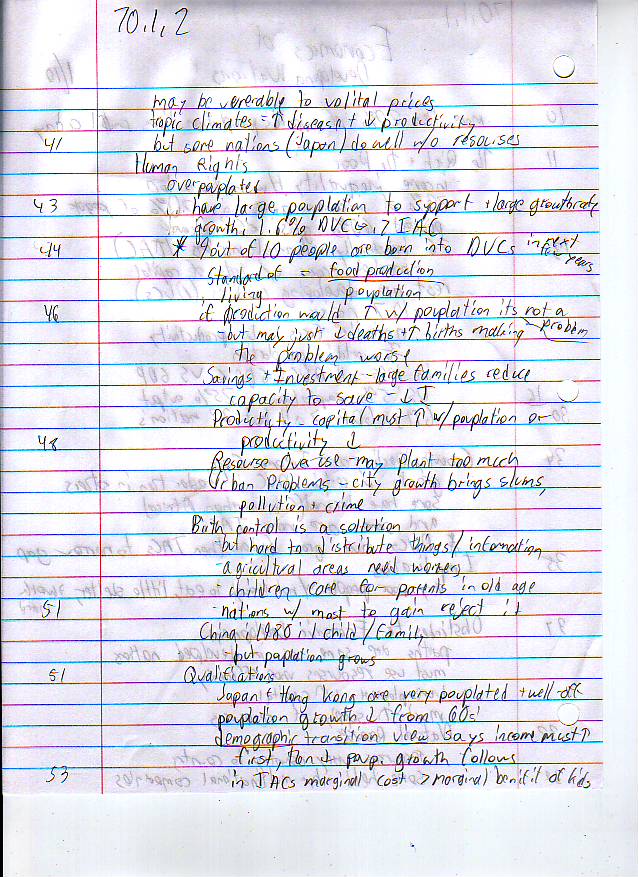 70.1, 2
may be vererable to volital prices
tropic climates = ↑ diseases + ↓ productivity
41 but some nations (Japan) do well w/o resourses
Human Rights
overpouplated
43 have large pouplation to support + large growthrate
growth: 1.6% DVC
44 * 9 out of 10 people are born into DVCs in next few years
Standard of = food production
living pouplation
46 if production would ↑ w/ pouplation its not a
-but may just ↓ deaths + ↑ births making probem
the problem worse
Savings + Investment - large families reduce
capacity to save - ↓ I
Productivity - capital must ↑ w/ pouplation or
48 productivity ↓
Resourse Over use - may plant too much
Urban Problems - city growth brings slums,
pollution + crime
Birth control is a solution
-but hard to distribute things/information
-agricultural areas need workers
- children care for parents in old age
51 -nations w/ most to gain reject it
China : 1980 : 1 child / family
-but poplation grows
51 Qualifiations
Japan + Hong Kong are very pouplated + well-off
pouplation growth ↓ from 60s'
demographic transition view says income must ↑
first, then ↓ poup. growth follows
53 in IACs marginal cost > marginal benifit of kids